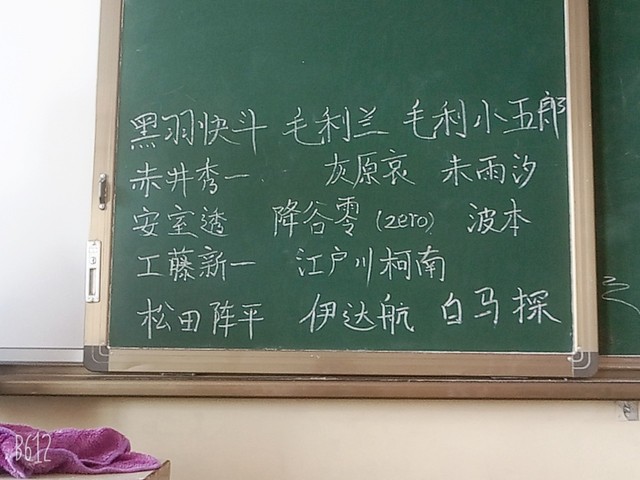 黑羽快斗 毛利兰 毛利小五郎
赤井秀一 灰原哀 朱雨汐
安室透 降谷零(zero) 波本
工藤新一 江户川柯南
松田阵平 伊达航 白马探
B612